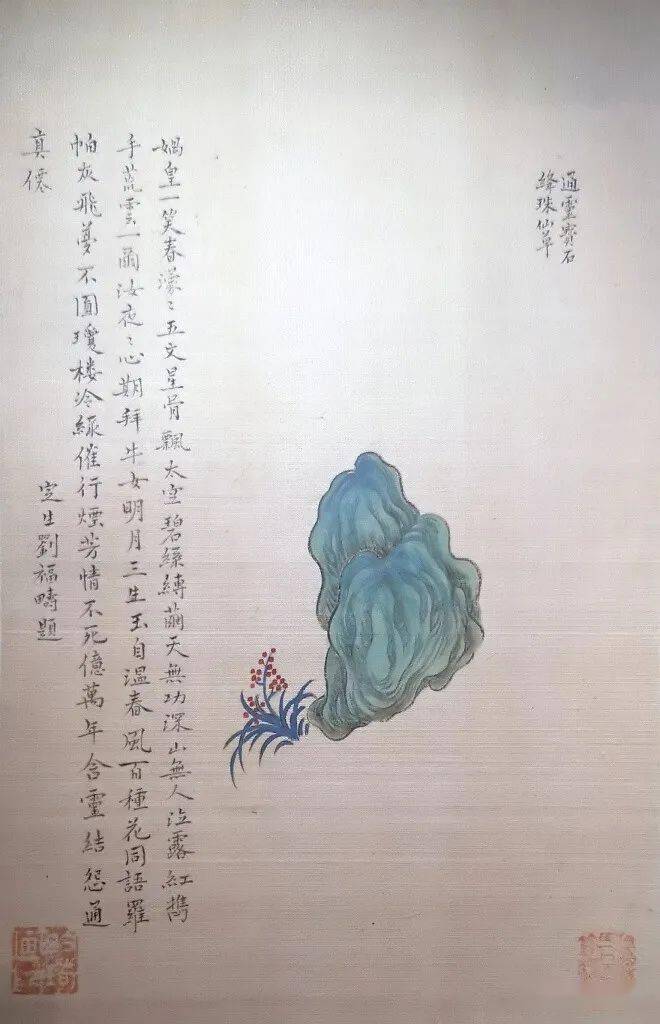 通靈寶石
絳珠仙草
媧皇一笑春濛〻五文星骨飄太空碧縛繭天無功深山無人泣露紅擕
手荒雲一爾汝夜〻心期拜牛女明月三生玉自温春風百種花同語羅
帕灰飛夢不圓瓊楼冷綠催行煙芳情不死億萬年含靈結怨通
真僊
定生劉福疇題